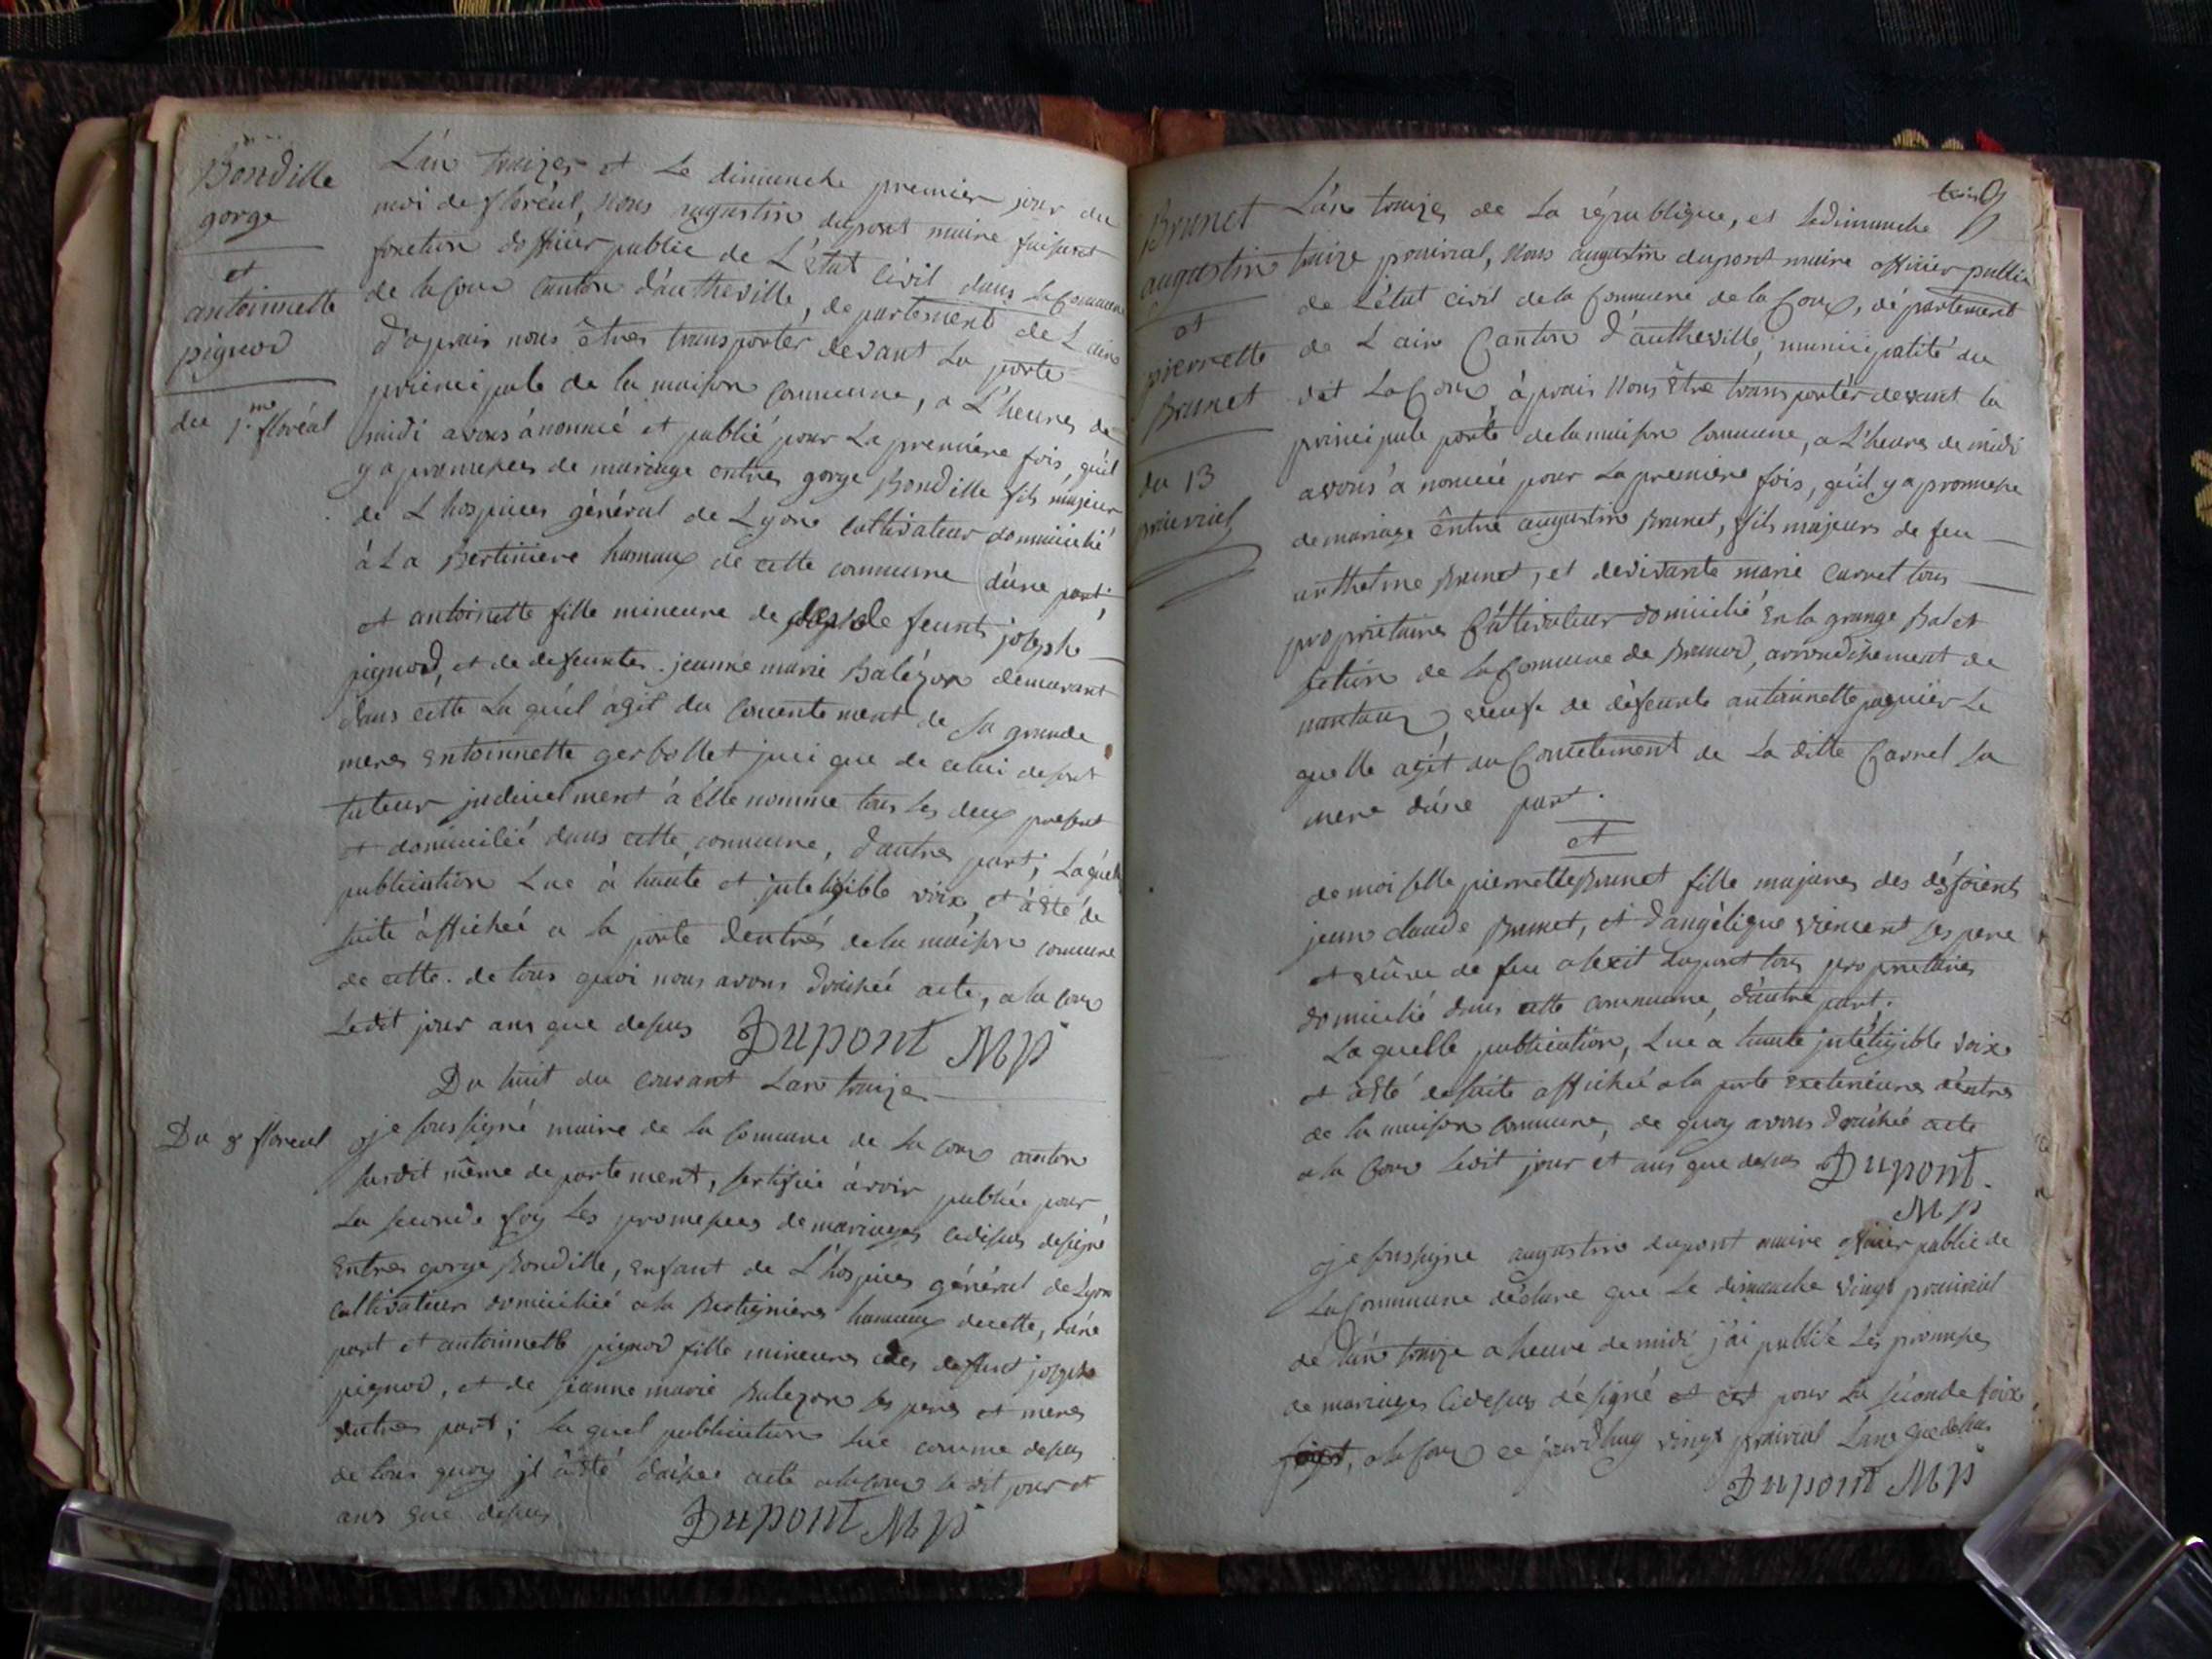 Bondille
gorge
et
antoinnette
pignod
du 1.me floréal
L'an traizes et Le dimanche premier jour du
moi de floréal, nous augustin dupont maire faisant
fonction dofficier public de L'état civil dans la Commune
de la Coux Canton d'autheville, departement de L'ain
d'aprais nous êtres transporter devant La porte
principale de la maison commune, a L'heures de
midi avons ánonncé et publié pour La premiére fois, qu'il
y a promesses de mariage entres gorge Bondille fils majeur
de L'hospices général de Lyon cultivateur dommicilié
à La Bertiniere hamaux de cette commune d'une part;
et antoinette fille mineure de feunt joseph
pignod, et de defeuntes jeanne marie Balézon demeurant
dans cette La quél ágit du Concentement de sa grande
meres entoinnette gerbollet juci que de celui de son
tuteur judiciel ment à élle nomme tous les deux present
et domicilié dans cette commune, d'autres part; Laquell
publication Lue à haute et jnteligible voix et a été de
suite áffichéé a la porte dentrés de la maison comune
de cette. de tous quoi nous avons draisée acte, a la Coux
Ledit jour ans que desus Dupont MP
Du huit du courant L'an traize
Du 8 floreal
je soussigné maire de la Comune de la Coux canton
susdit même departement, sertifie ávoir publiée pour
La seconde foy Les promesses de mariages cidesus désigné
Entres gorge Bondille, enfant de L'hospices général de Lyon
cultivateur domicilié a la Bertignieres hamaux decette, d'une
part et antoinnette pignod fille mineures des defunt joseph
pignod, et de jeanne marie Balezon ses peres et meres
dutres part; la quel publication Lue comme desus
de tous quoy jl á été draisee acte a la Coux le dit jour et
ans que desus. Dupont MP
Brunet
augustin
et
pierrette
Brunet
du 13
prairial
L'an traizes de La république, et le dimanche
traize prairial, nous augustin dupont maire officier public
de L'état civil de la Commune de la Coux, département
de L'ain Canton d'autheville, municipalité du
dit La Coux, áprais nous être transporter devant la
principale porte de la maison commune, a L'heures de midi
avons á nonncé pour La premiere fois, qu'il y a promesse
de mariage êntre augustin Brunet, fils majeurs de feu
anthelme Brunet, et devivante marie Carrel tous
propriétaires Cultivateur domicilié en la grange Balet
setion de la Commune de Brenod, arrondissement de
nantua, veuf de défeunte antoinnette paquier Le
quelle agit du Concetement de La ditte Carrel sa
mere d'une part.
et
demoiselle pierrette Brunet fille majeures des défeunts
jean claude Brunet, et d'angélique vincent ses pere
et veuve de feu alexit dupont tous proprietaires
domicilié dans cette commune, d'autre part.
La quelle publication, Lue a haute jntéligible voix
et à été de suite affichée a la porte exterieures d'entres
de la maison commune, de quoy avons draisée acte
a la Coux Ledit jour et ans que desus Dupont.
MP
je soussigne augustin dupont maire officier public de
La Commune déclare que Le dimanche vingt prairial
de L'an traize a heure de midi j'ai publié Les promesses
de mariages Cidesus désigné et cet pour La seconde foix
a la Coux ce jourdhuy vingt prairial L'ans que desus
Dupont MP